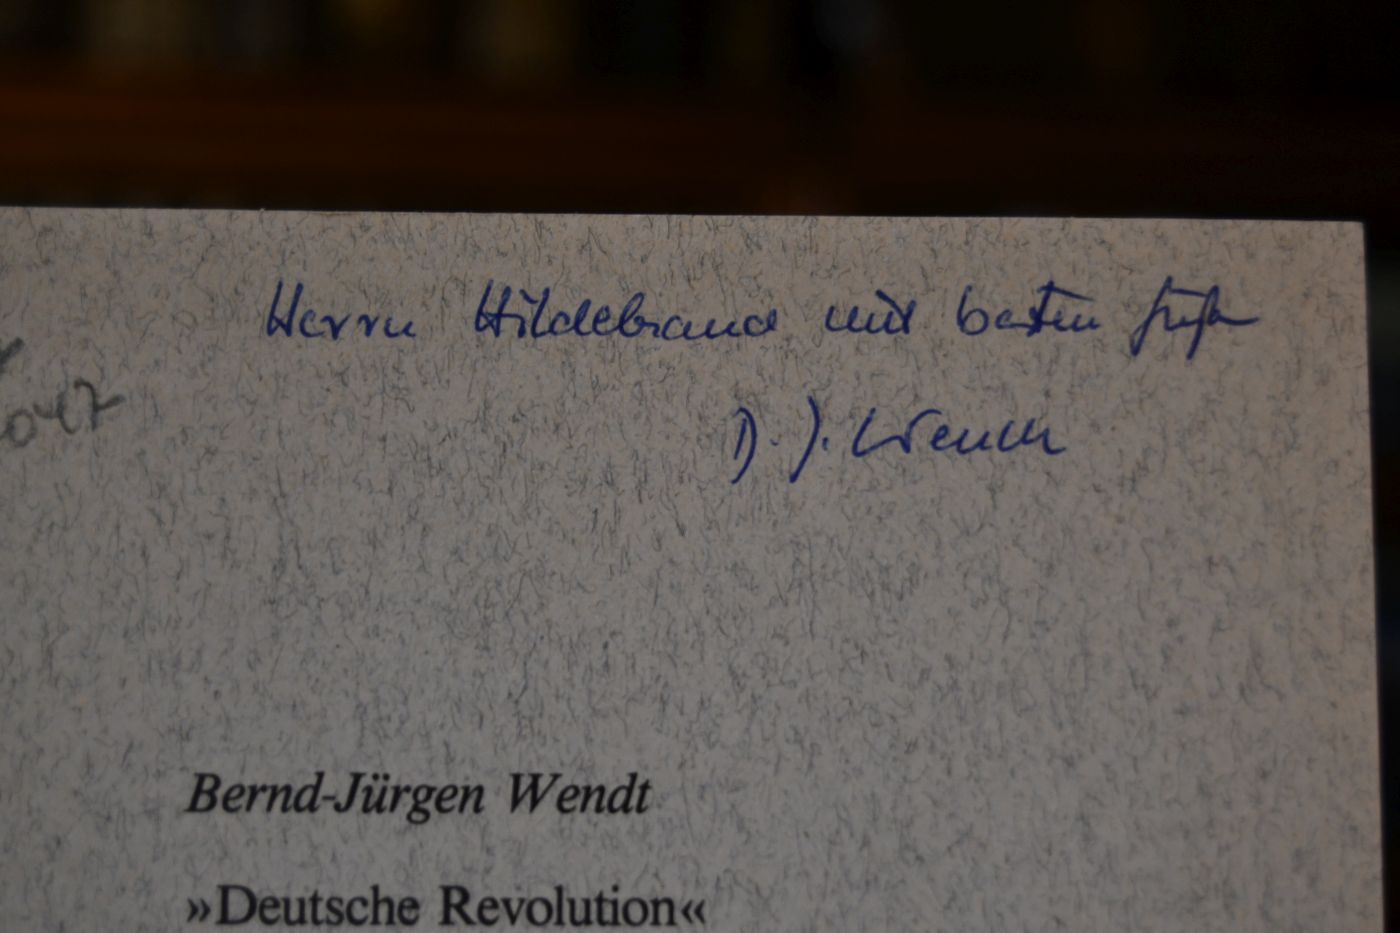 Herrn Hildebrand mit besten Grüßen
B. J. Wendt
047
Bernd-Jürgen Wendt
»Deutsche Revolution«